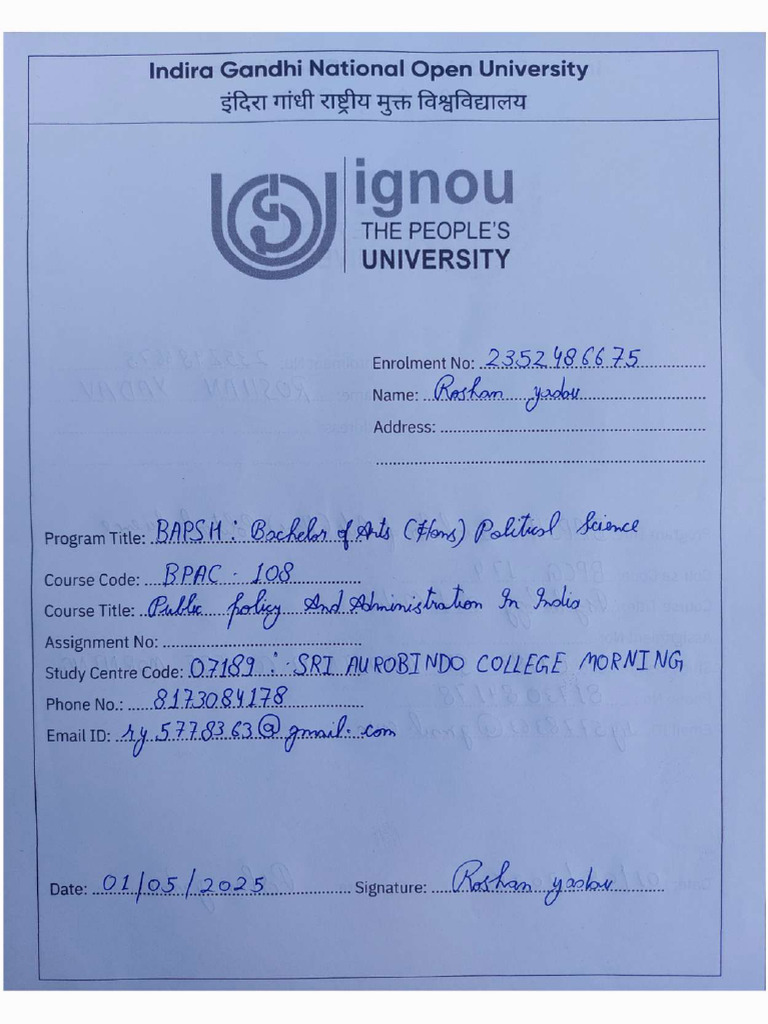 Indira Gandhi National Open University
इंदिरा गांधी राष्ट्रीय मुक्त विश्वविद्यालय
ignou
THE PEOPLE'S
UNIVERSITY
Enrolment No: 2352486675
Name: Roshan yadav
Address:
Program Title: BAPSH : Bachelor of Arts (Hons) Political Science
Course Code: BPAC - 108
Course Title: Public policy And Administration In India
Assignment No:
Study Centre Code: 07189 :- SRI AUROBINDO COLLEGE MORNING
Phone No.: 8173084178
Email ID: ry.5778363@gmail.com
Date: 01/05/2025 Signature: Roshan yadav